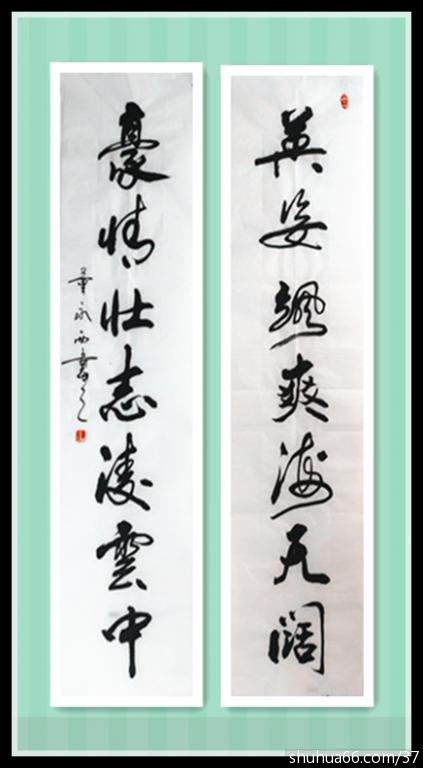 英姿颯爽海天阔
豪情壮志凌雲中
永西書
shuhua66.com/37